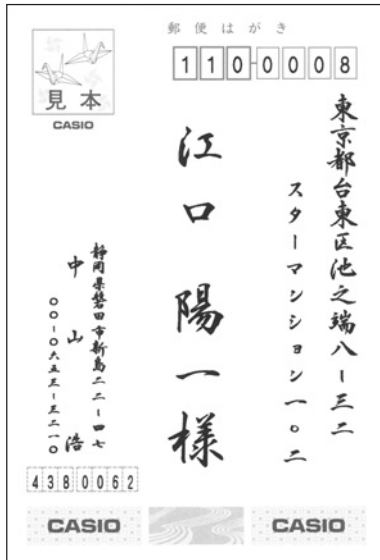 郵便はがき
110-0008
東京都台東区池之端八ー三二
スターマンション一〇二
江口陽一様
静岡県磐田市新島二二ー四七
中山浩
〇〇ー〇六五三ー三二一〇
4380062
見本
CASIO
CASIO
CASIO